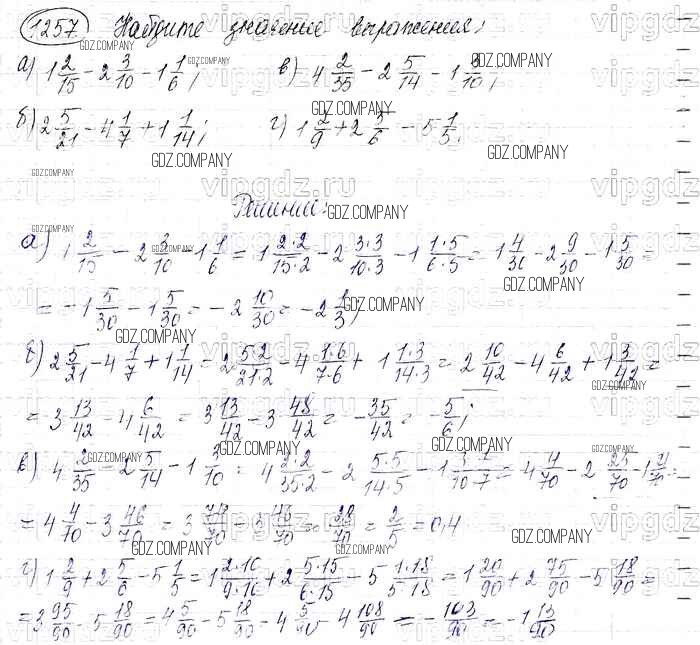 1257. Найдите значение выражения:
а) 1 2/15 − 2 3/10 − 1 1/6; в) 4 2/35 − 2 5/14 − 1 3/10;
б) 2 5/21 − 4 1/7 + 1 1/14; г) 1 2/9 + 2 5/6 − 5 1/5.
Решение:
а) 1 2/15 − 2 3/10 − 1 1/6 = 1 2·2/15·2 − 2 3·3/10·3 − 1 1·5/6·5 = 1 4/30 − 2 9/30 − 1 5/30 =
= − 1 5/30 − 1 5/30 = − 2 10/30 = − 2 1/3;
б) 2 5/21 − 4 1/7 + 1 1/14 = 2 5·2/21·2 − 4 1·6/7·6 + 1 1·3/14·3 = 2 10/42 − 4 6/42 + 1 3/42 =
= 3 13/42 − 4 6/42 = 3 13/42 − 3 48/42 = − 35/42 = − 5/6;
в) 4 2/35 − 2 5/14 − 1 3/10 = 4 2·2/35·2 − 2 5·5/14·5 − 1 3·7/10·7 = 4 4/70 − 2 25/70 − 1 21/70 =
= 4 4/70 − 3 46/70 = 3 74/70 − 3 46/70 = 28/70 = 2/5 = 0,4
г) 1 2/9 + 2 5/6 − 5 1/5 = 1 2·10/9·10 + 2 5·15/6·15 − 5 1·18/5·18 = 1 20/90 + 2 75/90 − 5 18/90 =
= 3 95/90 − 5 18/90 = 4 5/90 − 5 18/90 = 4 5/90 − 4 108/90 = − 103/90 = − 1 13/90
GDZ.COMPANY
vipgdz.ru